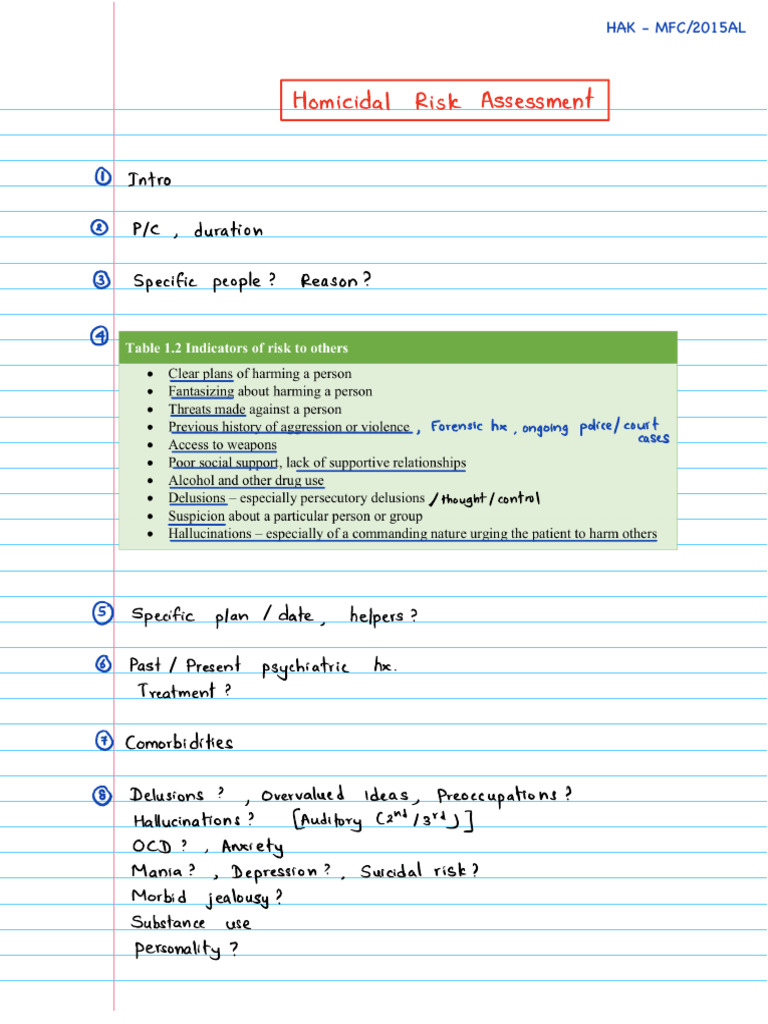 HAK - MFC/2015AL
Homicidal Risk Assessment
① Intro
② P/C , duration
③ Specific people? Reason?
④
Table 1.2 Indicators of risk to others
• Clear plans of harming a person
• Fantasizing about harming a person
• Threats made against a person
• Previous history of aggression or violence , Forensic hx , ongoing police/court cases
• Access to weapons
• Poor social support, lack of supportive relationships
• Alcohol and other drug use
• Delusions – especially persecutory delusions /thought/control
• Suspicion about a particular person or group
• Hallucinations – especially of a commanding nature urging the patient to harm others
⑤ Specific plan / date, helpers?
⑥ Past / Present psychiatric hx.
Treatment?
⑦ Comorbidities
⑧ Delusions ? , Overvalued Ideas, Preoccupations?
Hallucinations? [Auditory (2nd/3rd)]
OCD ? , Anxiety
Mania? , Depression? , Suicidal risk?
Morbid jealousy?
Substance use
Personality ?